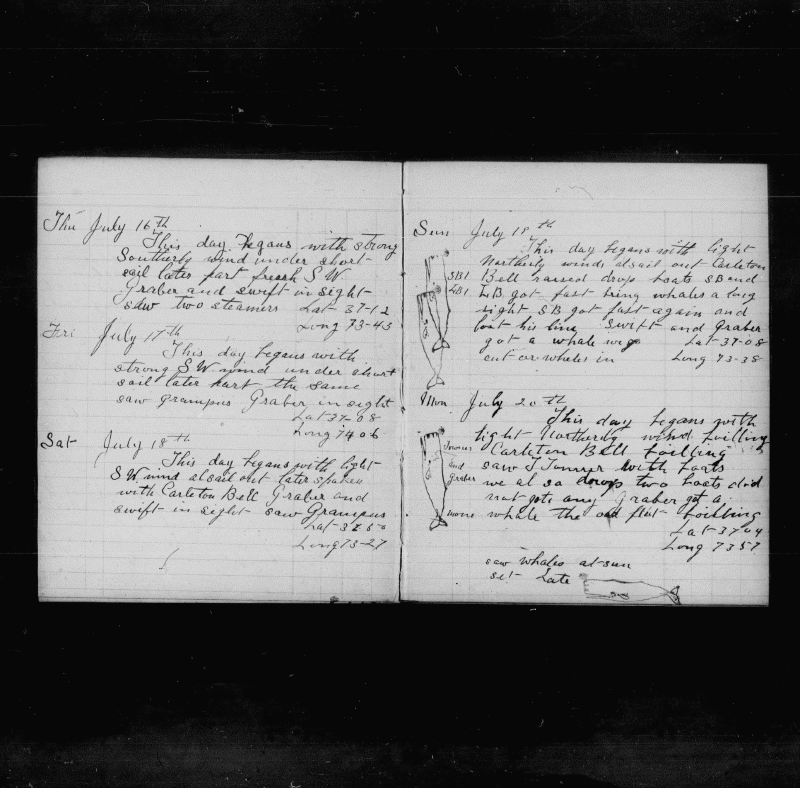 Thu July 16th
This day begans with strong
Southerly wind under short
sail later part fresh S W
Graber and swift in sight
saw two steamers Lat 37-12
Long 73-43
Fri July 17th
This day begans with
strong S W wind under short
sail later part the same
saw grampus Graber in sight
Lat 37-08
Long 74 06
Sat July 18th
This day begans with light
S W wind al sail out later spoken
with Carleton Bell Graber and
swift in sight saw Grampus
Lat 37 50
Long 73-27
Sun July 18th
This day begans with light
Northerly winds al sail out Carleton
SB1 Bell raised drop boats SB and
LB1 LB got fast bring whales a long
sight SB got fast again and
lost his line Swift and Graber
got a whale Lat-37-08
cut whales in Long 73-38
Mon July 20th
This day begans with
light Northerdy wind boilling
Carleton Bell boilling
and saw J Tonnyr with boats
Graber we al so drop two boats did
not gote any Graber got a
whale the flist boilling
Lat-37 04
Long 73 57
saw whales at sun
set Late